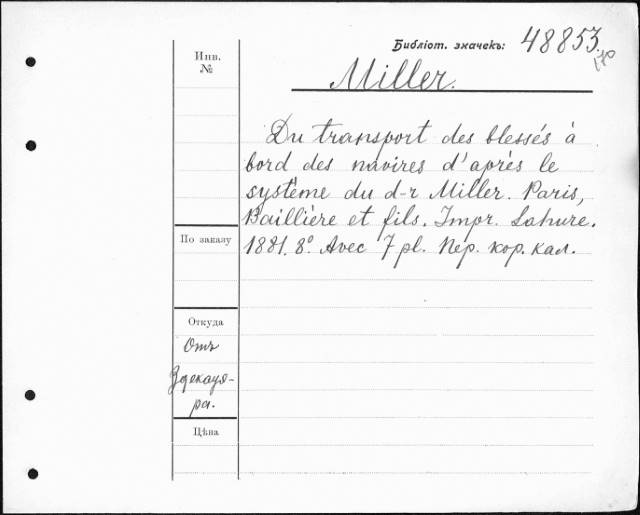 Библіот. значекъ: 48853.
170
Инв.
№
Miller.
Du transport des blessés à
bord des navires d'après le
système du d-r Miller. Paris,
Baillière et fils. Impr. Lahure.
1881. 8º. Avec 7 pl. Пер. кор. кал.
По заказу
Откуда
Отъ
Здекауэ-
ра.
Цѣна